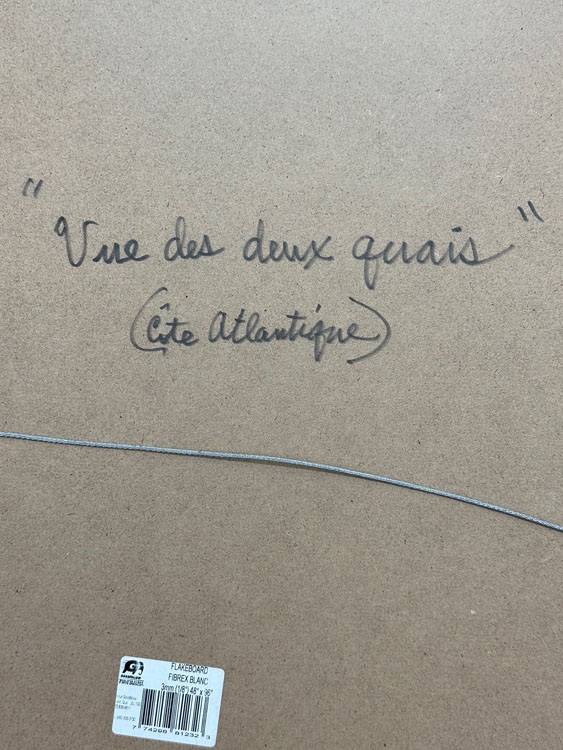 "Vue des deux quais"
(Côte Atlantique)
FLAKEBOARD
FIBREX BLANC
3mm (1/8") 48" x 96"
7 74298 81232 3